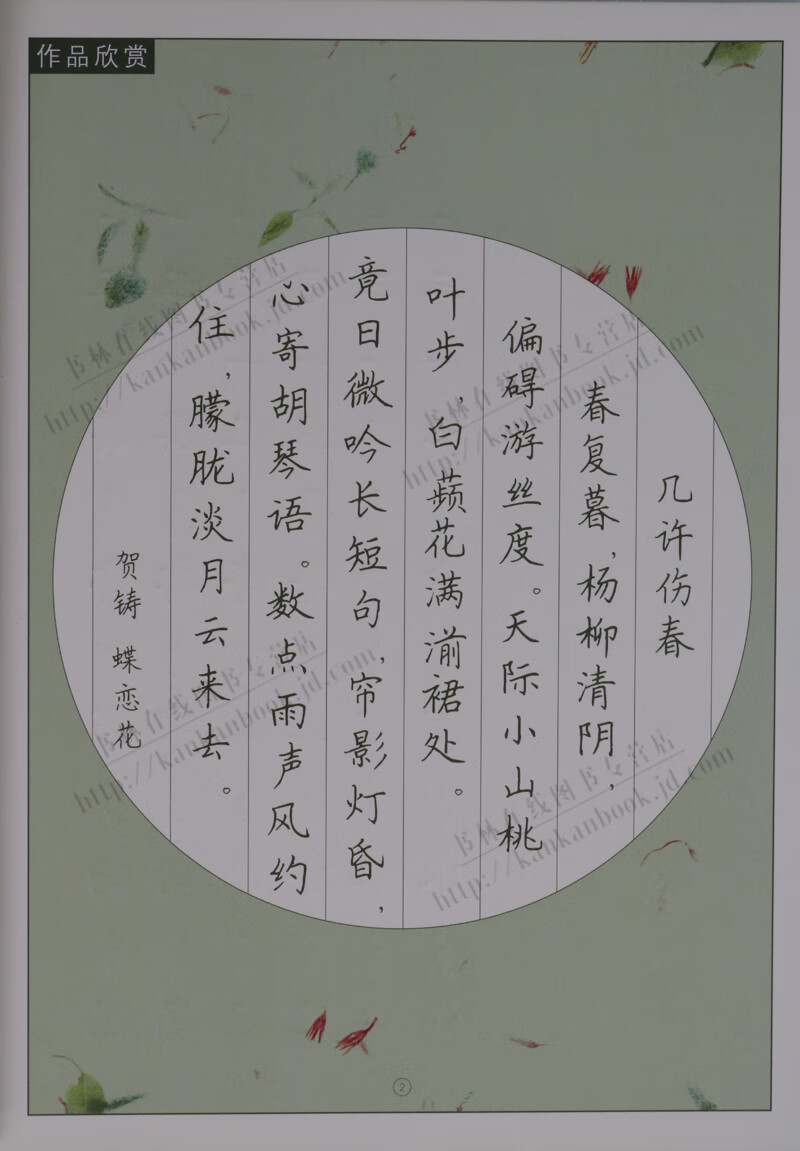 作品欣赏
几许伤春
春复暮，杨柳清阴，
偏碍游丝度。天际小山桃
叶步，白蘋花满湔裙处。
竟日微吟长短句，帘影灯昏，
心寄胡琴语。数点雨声风约
住，朦胧淡月云来去。
贺铸 蝶恋花
书林在线图书专营店
http://kankanbook.jd.com
书林在线图书专营店
http://kankanbook.jd.com
书林在线图书专营店
http://kankanbook.jd.com
书林在线图书专营店
http://kankanbook.jd.com
2